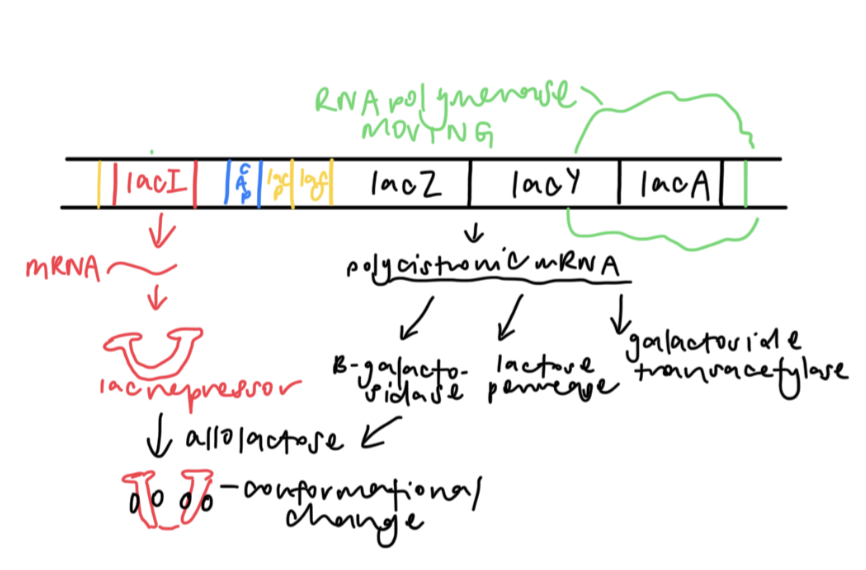 RNA polymerase
MOVING
lacI
CAP
lacZ
lacY
lacA
mRNA
polycistronic mRNA
lac repressor
B-galacto-
sidase
lactose
permease
galactoside
transacetylase
allolactose
conformational
change